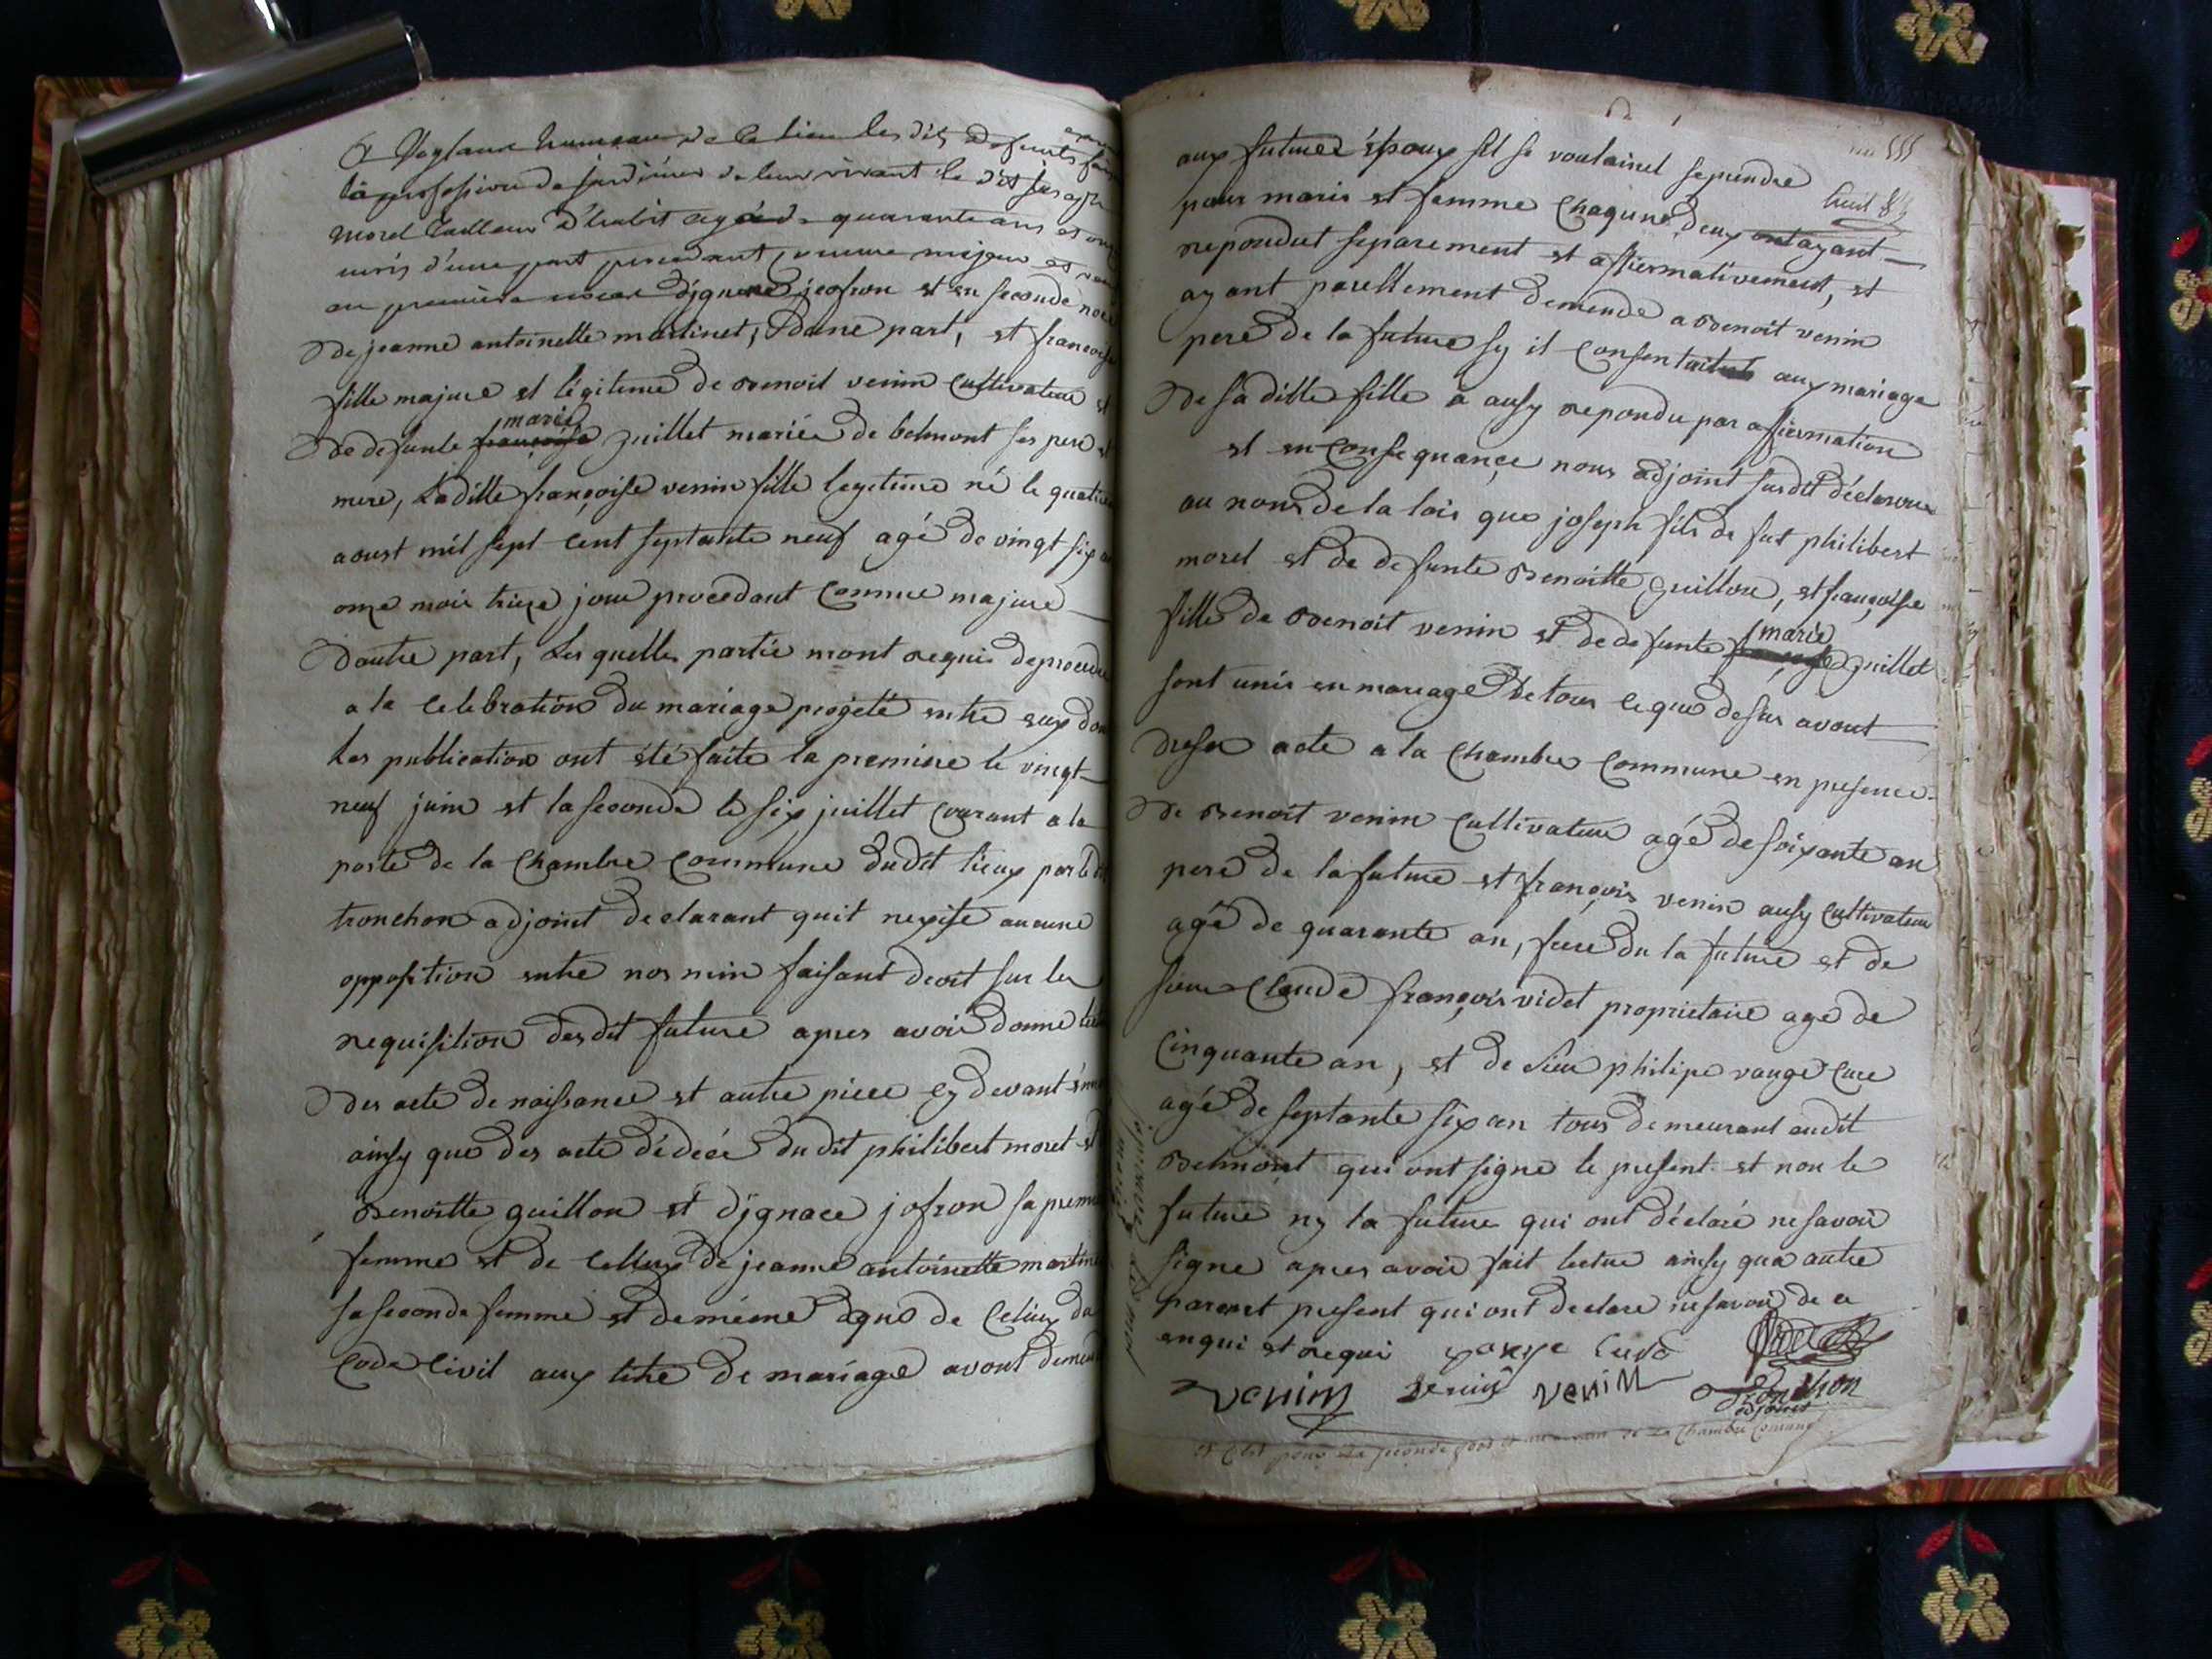 de ce lieu les dits defunts
la profession de jardinier de leur vivant le dit
morel tailleur d'habit agé de quarante ans
d'une part veuve majeur
en première djgnace jeofron et en seconde
De jeanne antoinette martinet, dune part, et françoise
fille majure et légitime de Benoit venin cultivateur et
De defunte françoise marie guillet mariée de belmont ses pere et
mere, Ladille françoise venin fille legitime né le
aoust mil sept cent septante neuf agé de vingt six
onze mois treize jour procedant comme majure
dautre part, Les quelle partie mont requis de proceder
a la celebration du mariage projeté entre eux
Les publication ont été faite la premiere le vingt
neuf juin et la seconde le six juillet courant a la
porte de la chambre commune dudit lieux par
tronchon adjoint declarant quil nexiste aucune
opposition entre nos min faisant droit sur la
requisition desdit future apres avoir donne
Des acte de naissance et autre piece cy devant
ainsy que des acte dédécé du dit philibert morel et
Benoitte guillon et djgnace jofron sa
femme et de celluy de jeanne antoinette
sa seconde femme et demême que de Celuy du
code civil aux titre de mariage avont
aux future époux sil se voulaint seprendre
pour maris et femme chaqune deux ont ayant
repondut separement et affiermativement, et
ayant parellement demende a Benoit venin
pere de la future sy il consentait aux mariage
De sa ditte fille a ausy repondu par affiermation
et en consequance nous adjoint susdit déclarons
au nom de la loix que joseph fils de fut philibert
morel et de defunte Benoitte guillon, et françoise
fille de Benoit venin et de defunte marie guillet
sont unis en mariage De tous ceque dessus avont
dressé acte a la chambre commune en presence
De Benoit venin cultivateur agé de soixante an
pere de la future et françois venin ausy cultivateur
agé de quarante an, frere du la future et de
sieur Claude françois videt proprietaire age de
Cinquante an, et de sieur philipe vauge cure
agé de septante six an tous demeurant audit
Belmont qui ont signe le present et non le
future ny la future qui ont déclaré ne savoir
signe apres avoir fait lectue ainsy qua autre
parent present qui ont declare ne savoir de ce
enqui et requi
venim venin venin tronchon
adjoint